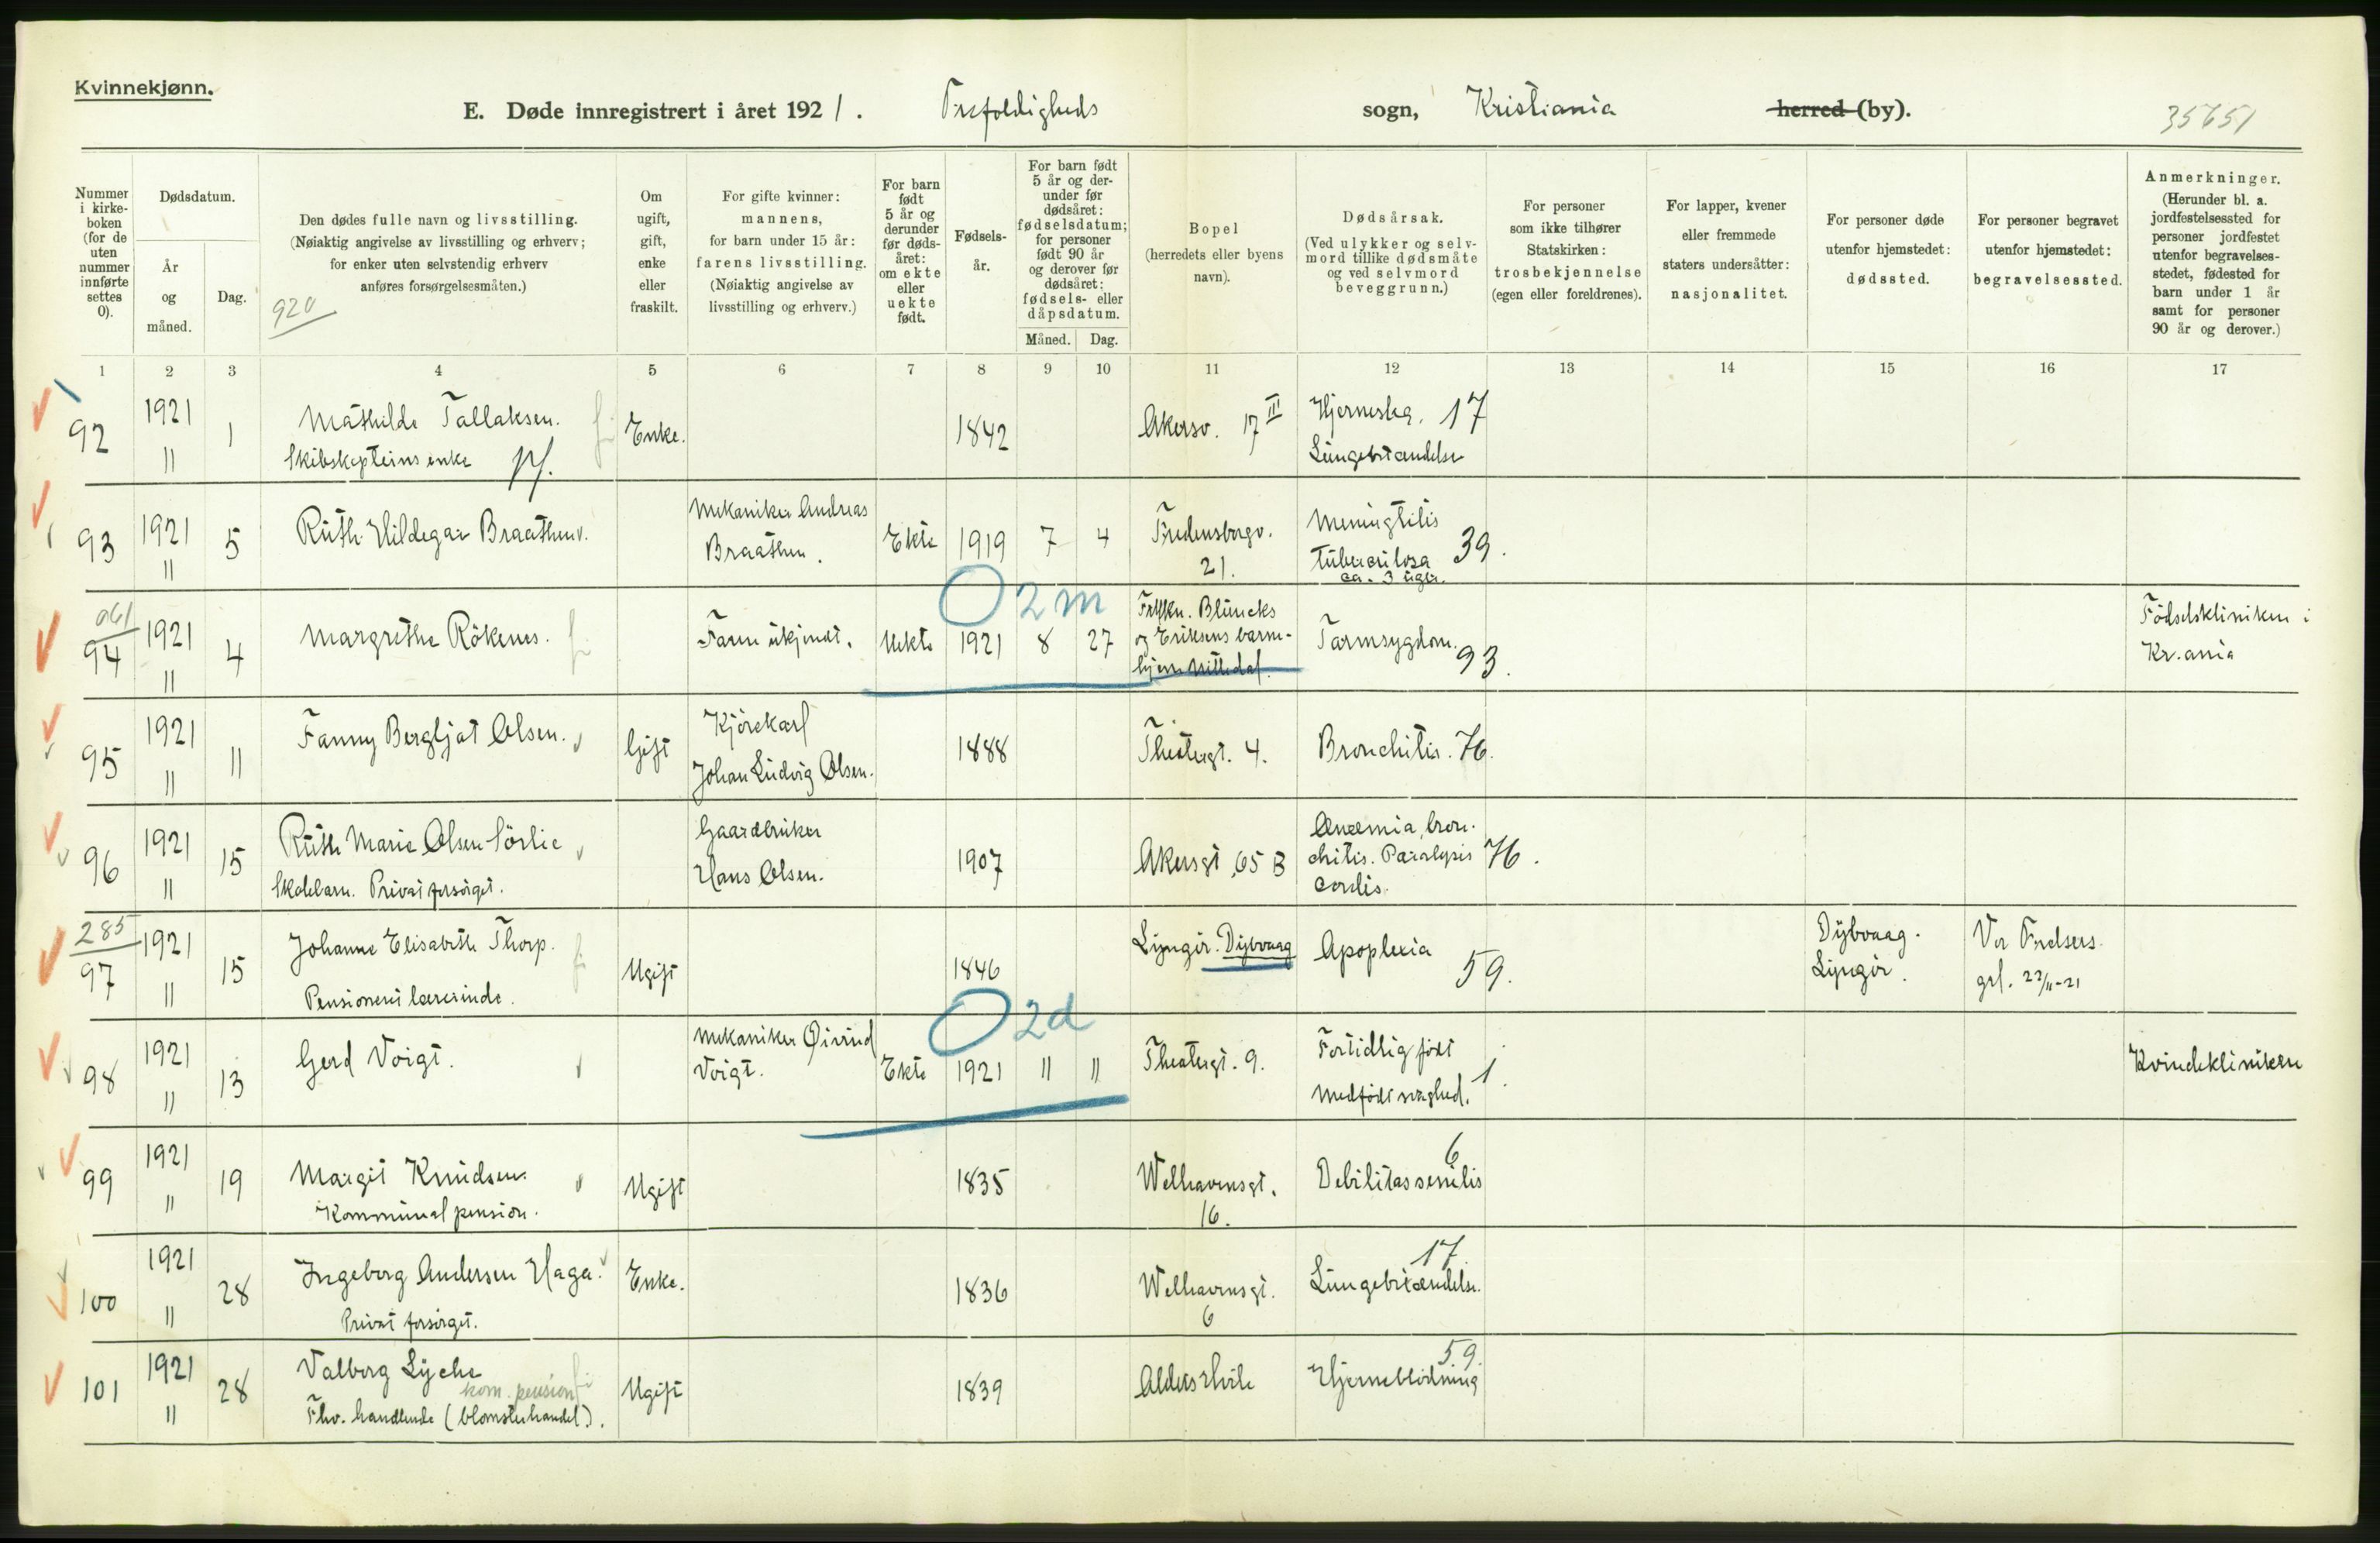 Kvinnekjønn.
E. Døde innregistrert i året 1921. Trefoldigheds sogn, Kristiania herred (by).
35651
Nummer i kirke-boken (for de uten nummer innførte settes 0).
Dødsdatum.
År og måned.
Dag.
Den dødes fulle navn og livsstilling.
(Nøiaktig angivelse av livsstilling og erhverv;
for enker uten selvstendig erhverv
anføres forsørgelsesmåten.)
920
Om ugift, gift, enke eller fraskilt.
For gifte kvinner:
mannens,
for barn under 15 år:
farens livsstilling.
(Nøiaktig angivelse av
livsstilling og erhverv.)
For barn født 5 år og derunder før døds-året: om ekte eller uekte født.
Fødsels-år.
For barn født 5 år og der-under før dødsåret: fødselsdatum; for personer født 90 år og derover før dødsåret: fødsels- eller dåpsdatum.
Måned. Dag.
Bopel
(herredets eller byens
navn).
Dødsårsak.
(Ved ulykker og selv-
mord tillike dødsmåte
og ved selvmord
beveggrunn.)
For personer
som ikke tilhører
Statskirken:
trosbekjennelse
(egen eller foreldrenes).
For lapper, kvener
eller fremmede
staters undersåtter:
nasjonalitet.
For personer døde
utenfor hjemstedet:
dødssted.
For personer begravet
utenfor hjemstedet:
begravelsessted.
Anmerkninger.
(Herunder bl. a.
jordfestelsessted for
personer jordfestet
utenfor begravelses-
stedet, fødested for
barn under 1 år
samt for personer
90 år og derover.)
1 2 3 4 5 6 7 8 9 10 11 12 13 14 15 16 17
92 1921 11 1 Mathilde Tallaksen. Enke. 1842 Akersv. 17 III 17
Skibskapteins enke pf. Lungebetændelse
93 1921 11 5 Ruth Hildegar Braathen. Mekaniker Andreas Braathen. Ekte 1919 7 4 Fredensborgv. 21. Meningtilis tuberculosa ca. 3 uger. 39.
O 2 m
961
94 1921 11 4 Margrethe Rökenes. Faren ukjendt. Uekte 1921 8 27 Frkn. Bluncks og Eriksens barne-hjem Nittedal. Tarmsygdom. 93. Födselskliniken i Kr.ania
95 1921 11 11 Fanny Bergljot Olsen. Gift Kjörekarl Johan Ludvig Olsen. 1888 Theatergt. 4. Bronchitis. 76.
96 1921 11 15 Ruth Marie Olsen Sörlie Gaardbruker Hans Olsen. 1907 Akersgt 65 B Anæmia, bron-chitis. Paralysis cordis. 76.
Skolebarn. Privat forsörget.
285
97 1921 11 15 Johanne Elisabeth Thorp. Ugift 1846 Lyngör. Dybvaag Apoplexia 59. Dybvaag. Lyngör. Vor Frelsers grl. 22/11-21
Pensioneret lærerinde.
O 2 d
98 1921 11 13 Gerd Voigt. Mekaniker Øivind Voigt. Ekte 1921 11 11 Theatergt. 9. Fortidlig födt Medfödt svaghed. 1. Kvindekliniken
99 1921 11 19 Margit Knudsen. Ugift 1835 Welhavensgt. 16. Debilitas senilis 6
Kommunal pension.
100 1921 11 28 Ingeborg Andersen Haga. Enke. 1836 Welhavensgt. 6 Lungebetændelse. 17
Privat forsörget.
101 1921 11 28 Valborg Lyche Ugift 1839 Alders Hvile Hjerneblödning 59.
kom. pension
Fhv. handlende (blomsterhandel).